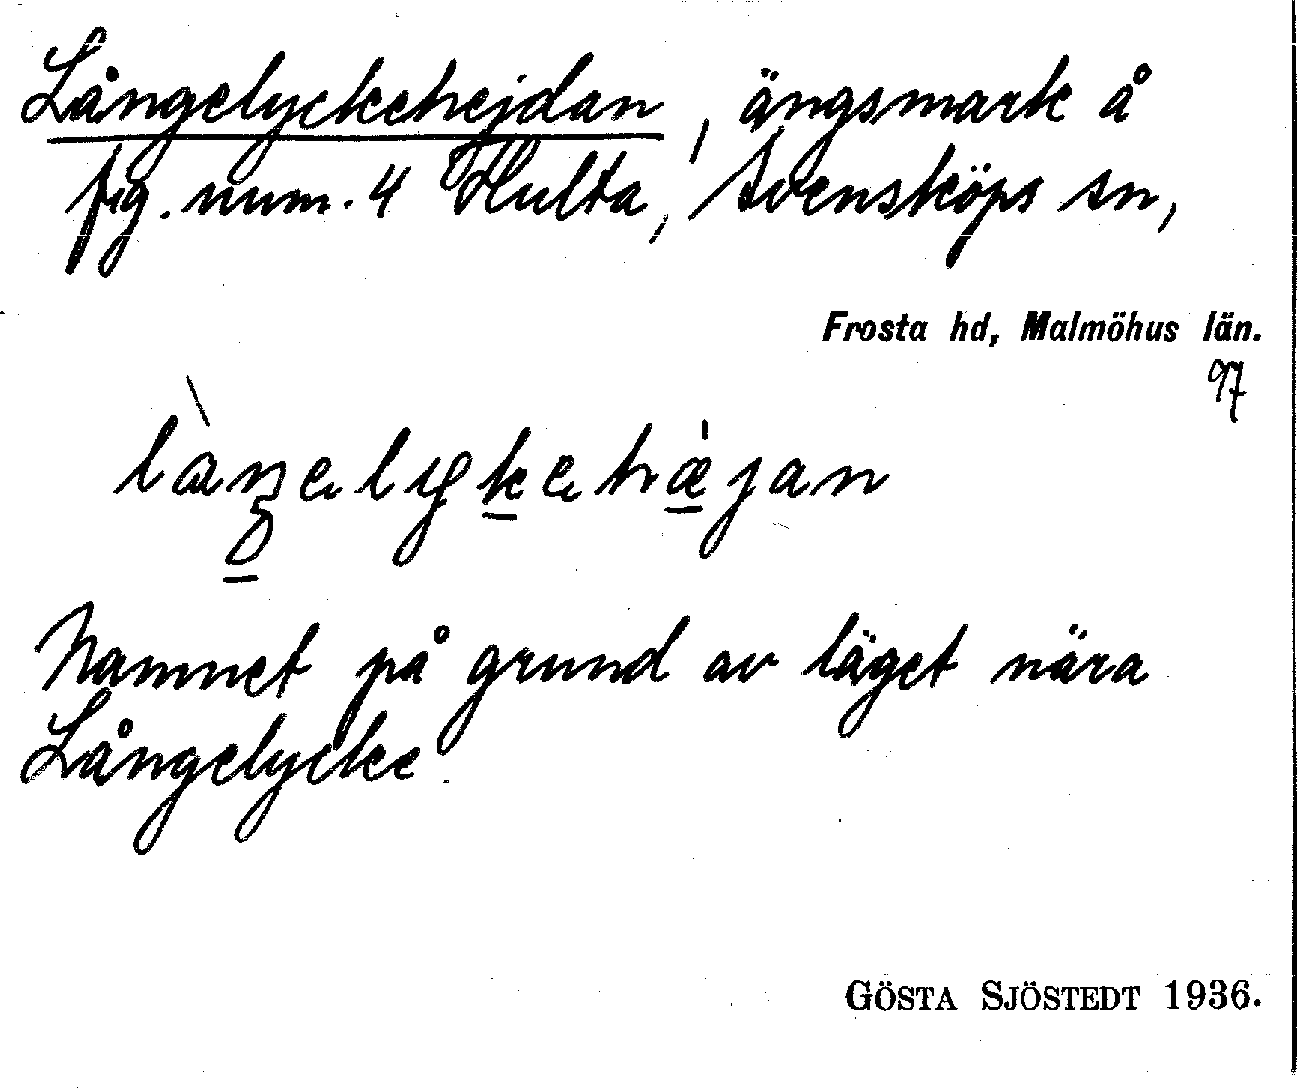 Långelyckehejdan, ängsmark å
fg. num. 4 Hulta, Svensköps sn,
Frosta hd, Malmöhus län.
97
Namnet på grund av läget nära
Långelycke.
GÖSTA SJÖSTEDT 1936.